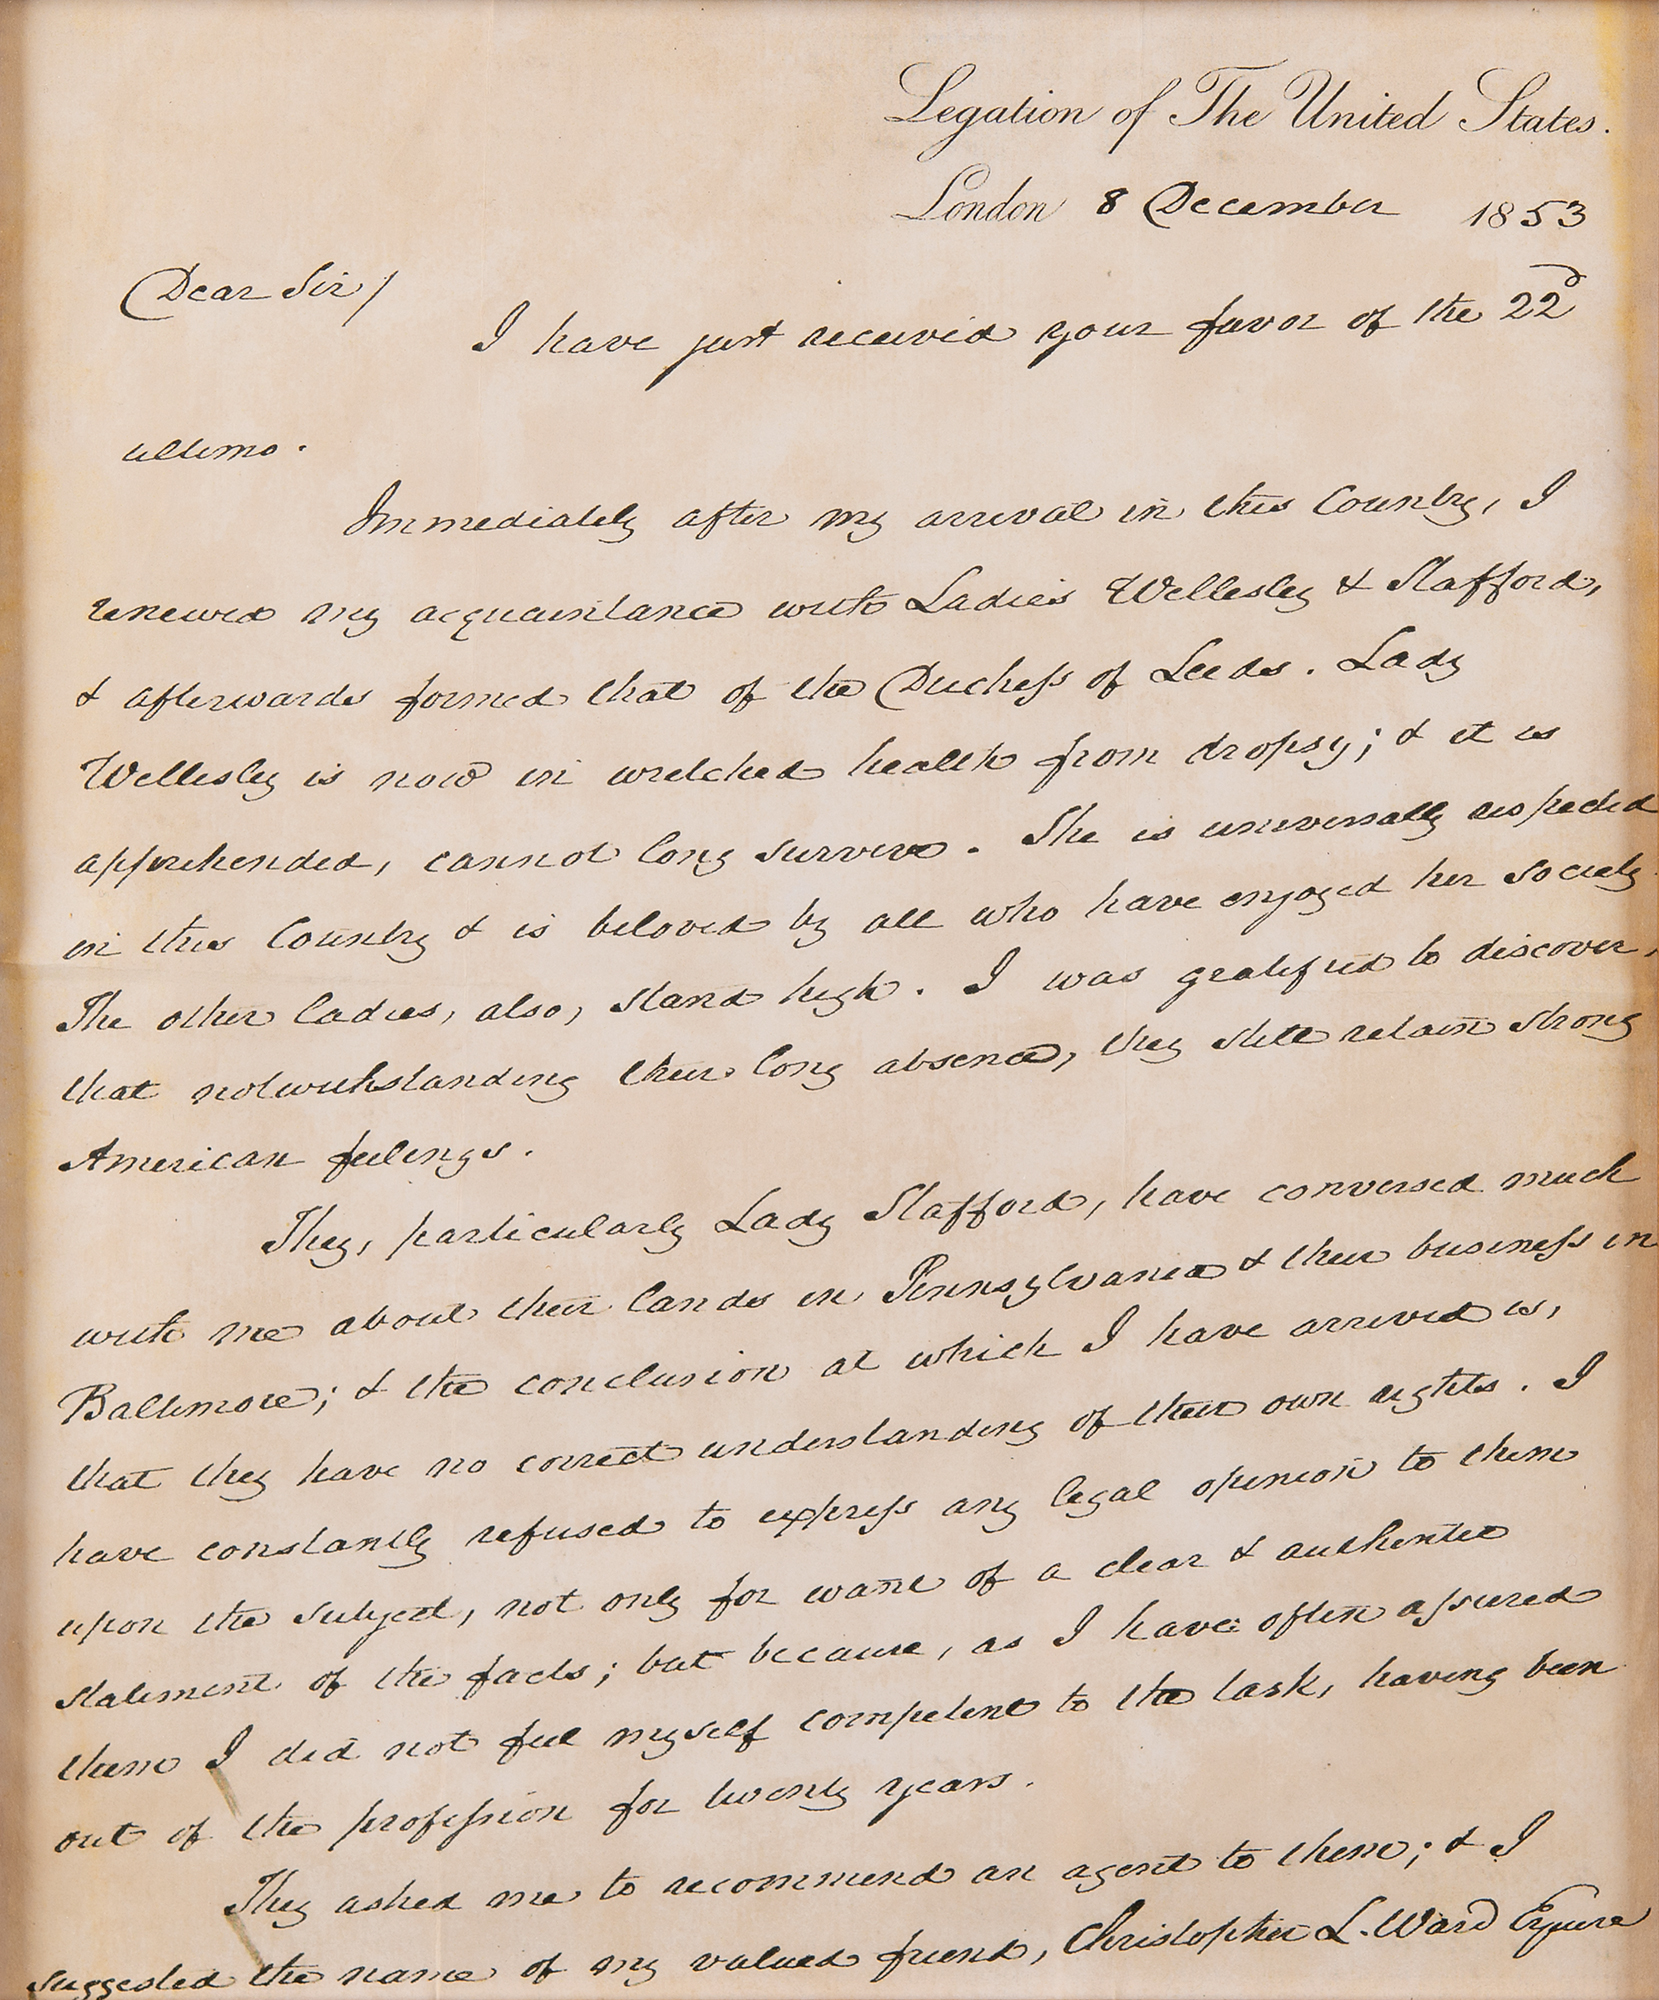 Legation of The United States.
London 8 December 1853
Dear Sir/
I have just received your favor of the 22d
ultimo.
Immediately after my arrival in this Country, I
renewed my acquaintance with Ladies Wellesley & Stafford,
& afterwards formed that of the Duchess of Leeds. Lady
Wellesley is now in wretched health from dropsy; & it is
apprehended, cannot long survive. She is universally respected
in this Country & is beloved by all who have enjoyed her society.
The other ladies, also, stand high. I was gratified to discover,
that notwithstanding their long absence, they still retain strong
American feelings.
They, particularly Lady Stafford, have conversed much
with me about their lands in Pennsylvania & their business in
Baltimore; & the conclusion at which I have arrived is,
that they have no correct understanding of their own rights. I
have constantly refused to express any legal opinion to them
upon the subject, not only for want of a clear & authentic
statement of the facts; but because, as I have often assured
them I did not feel myself competent to the task, having been
out of the profession for twenty years.
They asked me to recommend an agent to them; & I
suggested the name of my valued friend, Christopher L. Ward Esquire